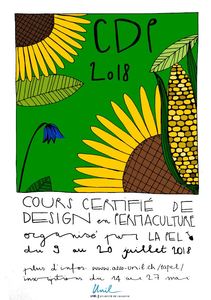 CDP
2018
COURS CERTIFIÉ DE
DESIGN en PERMACULTURE
organisé par LA PEL
du 9 au 20 juillet 2018
plus d'infos www.asso-unil.ch/lapel/
inscriptions du 14 au 27 mai
Unil